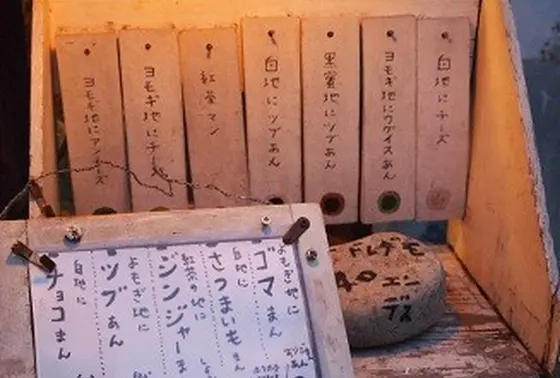 白地に チーズ
ヨモギ地にウグイスあん
黒蜜地にツブあん
白地にツブあん
紅茶マン
ヨモギ地にチーズ
ヨモギ地にアンチーズ
よもぎ地に
ゴマまん
白地に
さつまいもまん
紅茶の地に
ジンジャーま
よもぎ地に
ツブあん
白地に
チョコまん
ドレデモ
エン
デス